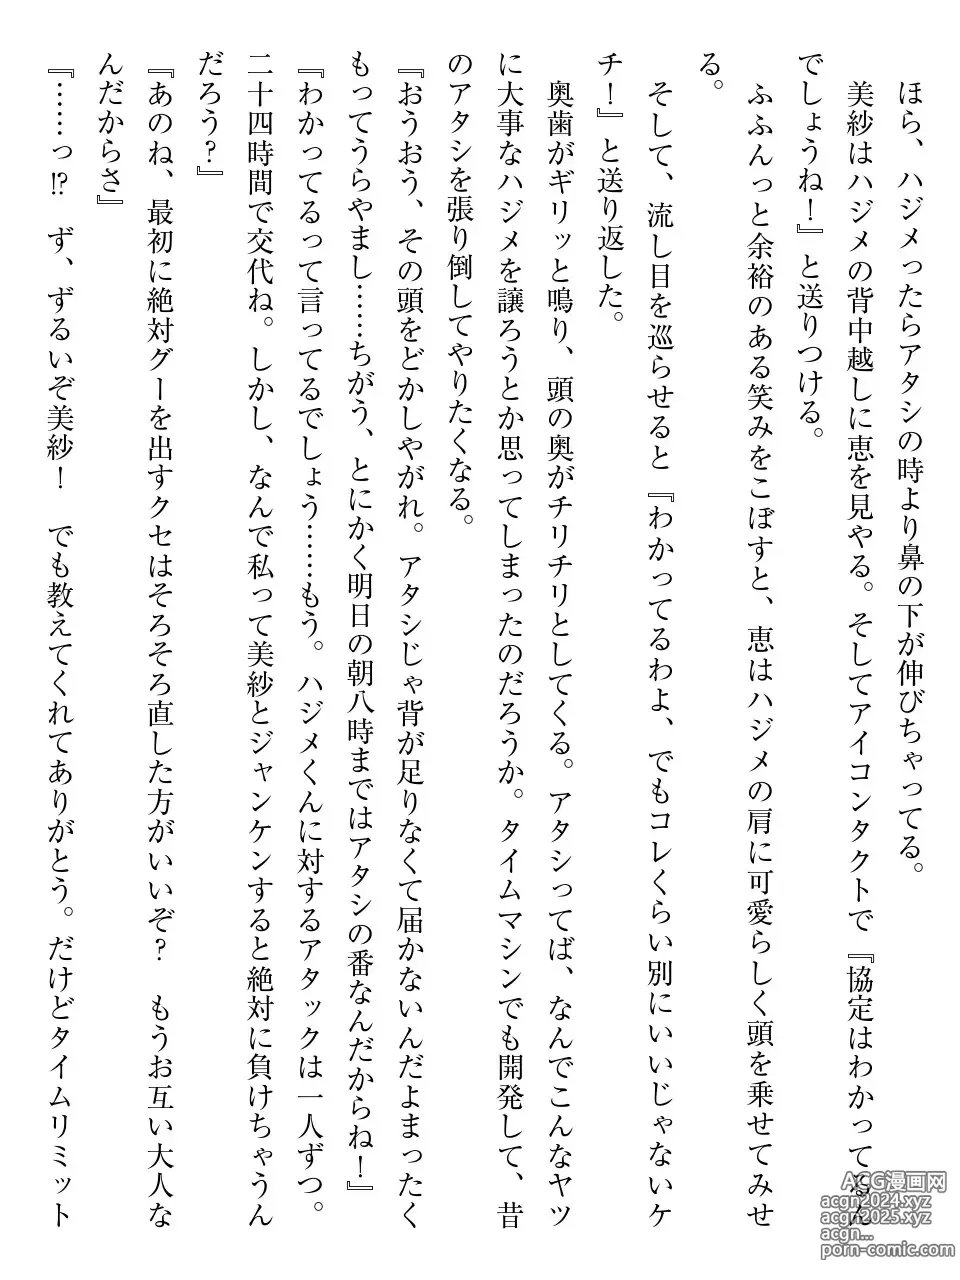 ほら、ハジメったらアタシの時より鼻の下が伸びちゃってる。
美紗はハジメの背中越しに恵を見やる。そしてアイコンタクトで『協定はわかってるん
でしょうね！』と送りつける。
ふふんっと余裕のある笑みをこぼすと、恵はハジメの肩に可愛らしく頭を乗せてみせ
る。
そして、流し目を巡らせると『わかってるわよ、でもコレくらい別にいいじゃないケ
チ！』と送り返した。
奥歯がギリッと鳴り、頭の奥がチリチリとしてくる。アタシってば、なんでこんなヤツ
に大事なハジメを譲ろうとか思ってしまったのだろうか。タイムマシンでも開発して、昔
のアタシを張り倒してやりたくなる。
『おうおう、その頭をどかしやがれ。アタシじゃ背が足りなくて届かないんだよまったく
もってうらやまし……ちがう、とにかく明日の朝八時まではアタシの番なんだからね！』
『わかってるって言ってるでしょう……もう。ハジメくんに対するアタックは一人ずつ。
二十四時間で交代ね。しかし、なんで私って美紗とジャンケンすると絶対に負けちゃうん
だろう？』
『あのね、最初に絶対グーを出すクセはそろそろ直した方がいいぞ？　もうお互い大人な
んだからさ』
『……っ⁉　ず、ずるいぞ美紗！　でも教えてくれてありがとう。だけどタイムリミット
ACG漫画网
acgn2024.xyz
acgn2025.xyz
acgn...
porn-comic.com